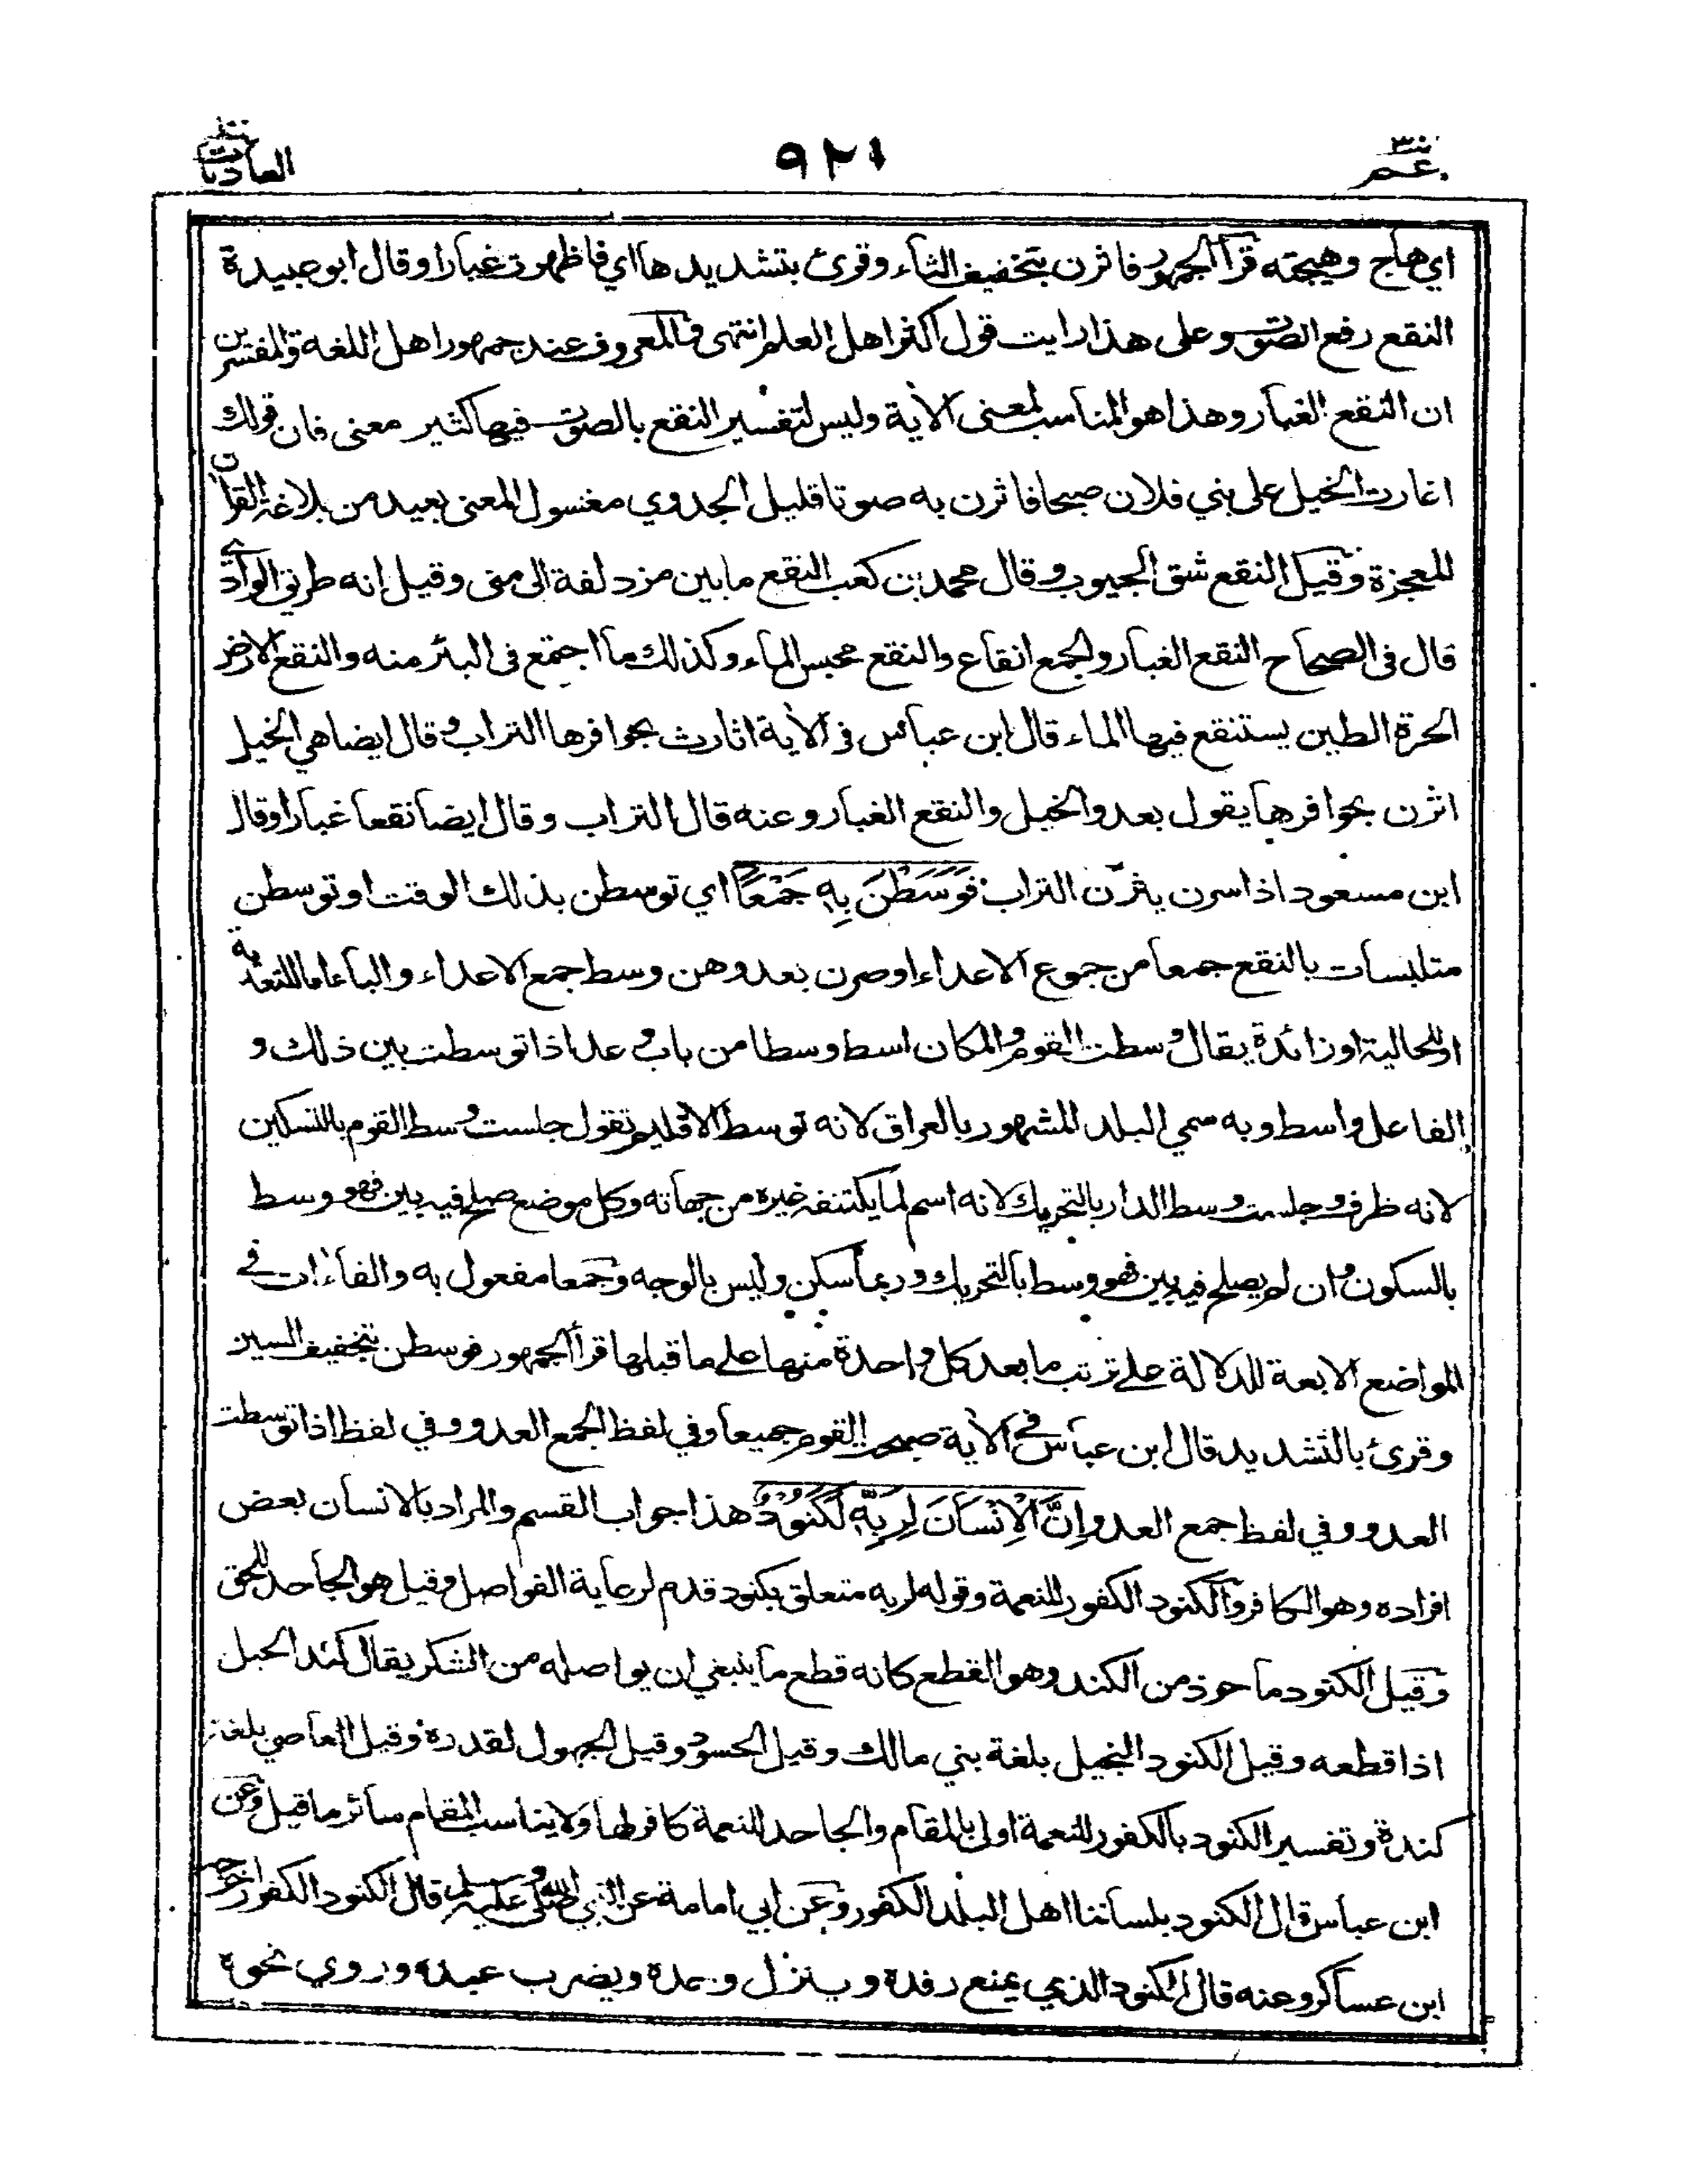 عم ٣٠
٩٢١
العاديات
اي هاج وهيجته قرأ الجمهور فاثرن بتخفيف الثاء وقرئ بتشديدها اي فاظهرن غبارا وقال ابو عبيدة
النقع رفع الصوت وعلى هذا رايت قول اكثر اهل العلم انتهى والمعروف عند جمهور اهل اللغة والمفسرين
ان النقع الغبار وهذا هو المناسب لمعنى الآية وليس لتفسير النقع بالصوت فيها كثير معنى فان قولك
اغارت الخيل على بني فلان صبحا فاثرن به صوتا قليل الجدوي مغسول المعنى بعيد من بلاغة القرآن
المعجزة وقيل النقع شق الجيوب وقال محمد بن كعب النقع ما بين مزدلفة الى منى وقيل انه طريق الوادي
قال في الصحاح النقع الغبار والجمع انقاع والنقع محبس الماء وكذلك ما اجتمع في البئر منه والنقع الارض
الحرة الطين يستنقع فيها الماء قال ابن عباس في الآية اثارت بحوافرها التراب وقال ايضا هي الخيل
اثرن بحوافرها يقول بعدو الخيل والنقع الغبار وعنه قال التراب وقال ايضا نقعا غبارا وقال
ابن مسعود اذا سرن يثرن التراب فَوَسَطْنَ بِهِ جَمْعًا اي توسطن بذلك الوقت او توسطن
متلبسات بالنقع جمعا من جموع الاعداء او صرن بعدوهن وسط جمع الاعداء والباء اما للتعدية
او للحالية او زائدة يقال وسطت القوم والمكان اسط وسطا من باب وعد اذا توسطت بين ذلك و
الفاعل واسط وبه سمي البلد المشهور بالعراق لانه توسط الاقليم تقول جلست وسط القوم بالتسكين
لانه ظرف وجلست وسط الدار بالتحريك لانه اسم لما يكتنفه غيره من جهاته وكل موضع صلح فيه بين فهو وسط
بالسكون وان لم يصلح فيه بين فهو وسط بالتحريك وربما سكن وليس بالوجه وجمعا مفعول به والفاءات في
المواضع الاربعة للدلالة على ترتب ما بعد كل واحدة منها على ما قبلها قرأ الجمهور فوسطن بتخفيف السين
وقرئ بالتشديد قال ابن عباس في الآية صبحت القوم جميعا وفي لفظ الجمع العدو وفي لفظ اذا توسطت
العدو وفي لفظ جمع العدو إِنَّ الْإِنْسَانَ لِرَبِّهِ لَكَنُودٌ هذا جواب القسم والمراد بالانسان بعض
افراده وهو الكافر والكنود الكفور للنعمة وقوله لربه متعلق بكنود قدم لرعاية الفواصل وقيل هو الجاحد للحق
وقيل الكنود ماخوذ من الكند وهو القطع كانه قطع ما ينبغي ان يواصله من الشكر يقال كند الحبل
اذا قطعه وقيل الكنود البخيل بلغة بني مالك وقيل الحسود وقيل الجهول لقدره وقيل العاصي بلغة
كندة وتفسير الكنود بالكفور للنعمة اولى بالمقام والجاحد للنعمة كافر لها ولا يناسب المقام سائر ما قيل وعن
ابن عباس قال الكنود بلساننا اهل البلد الكفور وعن ابي امامة عن النبي صلى الله عليه وسلم قال الكنود الكفور اخرجه
ابن عساكر وعنه قال الكنود الذي يمنع رفده وينزل وحده ويضرب عبده وروي نحوه